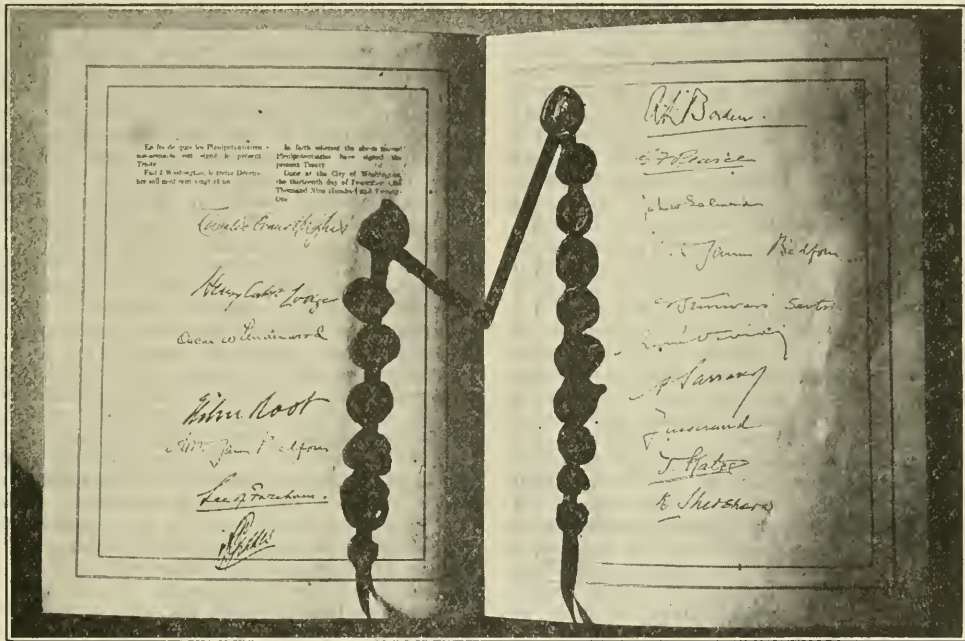 En foi de quoi les Plénipotentiaires
sus-nommés ont signé le présent
Traité
Fait à Washington, le treize Décem-
bre mil neuf cent vingt et un
In faith whereof the above named
Plenipotentiaries have signed the
present Treaty
Done at the City of Washington
the thirteenth day of December One
Thousand Nine Hundred and Twenty-
One
Charles Evans Hughes
Henry Cabot Lodge
Oscar W Underwood
Elihu Root
Arthur James Balfour
Lee of Fareham.
A Geddes
R L Borden.
G F Pearce
John W Salmond
Arthur James Balfour
Srinivasa Sastri
René Viviani
A Sarraut
Jusserand
T. Kato
K Shidehara